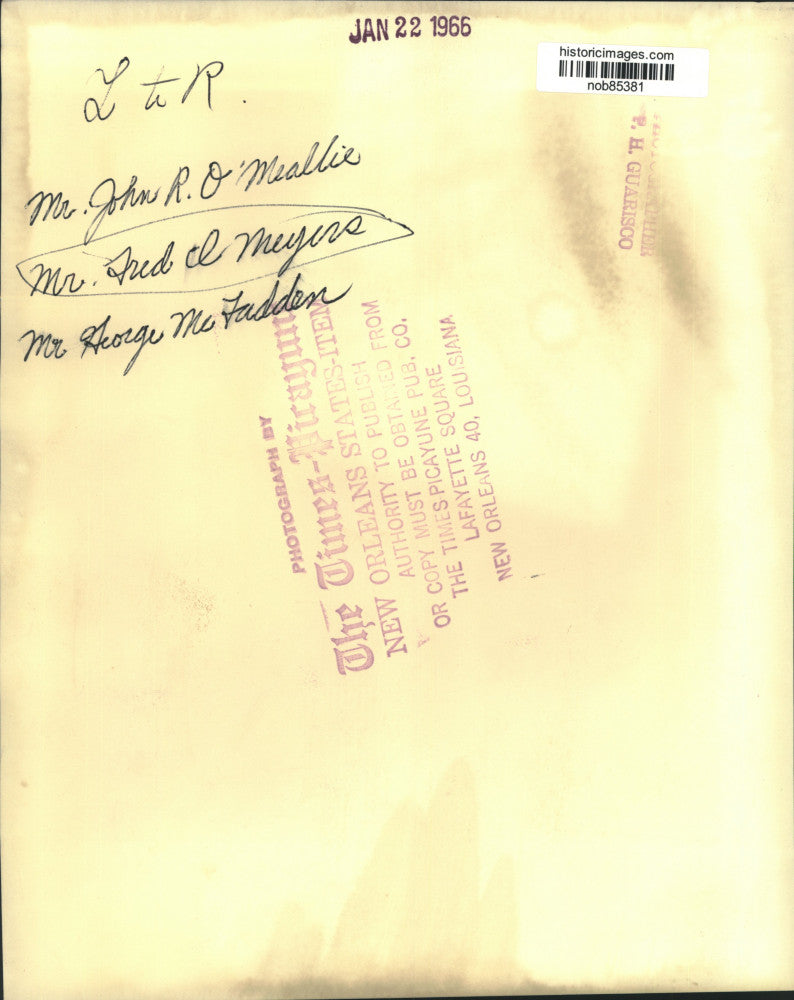 JAN 22 1966
historicimages.com
nob85381
L to R.
Mr. John R. O'Meallie
Mr. Fred Meyers
Mr George McFadden
P. H. GUARISCO
PHOTOGRAPH BY
The Times-Picayune
NEW ORLEANS STATES-ITEM
AUTHORITY TO PUBLISH
OR COPY MUST BE OBTAINED FROM
THE TIMES-PICAYUNE PUB. CO.
LAFAYETTE SQUARE
NEW ORLEANS 40, LOUISIANA